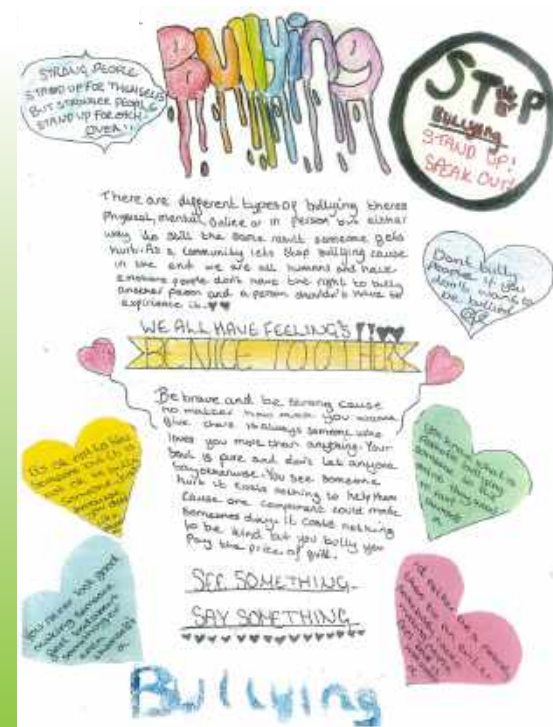 Bullying
STRONG PEOPLE
STAND UP FOR THEMSELVES
BUT STRONGER PEOPLE
STAND UP FOR EACH
OVER!!
STOP
Bullying
STAND UP!
SPEAK OUT!
There are different types of bullying theres
Physical, mental, Online or in person but either
way its still the same result someone gets
hurt. As a community lets stop bullying cause
in the end we are all humans and have
emotions people don't have the right to bully
another person and a person shouldn't have to
experience it.
Dont bully
People if you
don't want to
be bullied
WE ALL HAVE FEELING'S
BE NICE TO OTHERS
Be brave and be strong cause
no matter how much you wanna
give there is always someone who
loves you more than anything. Your
soul is pure and don't let anyone
say otherwise. You see someone
hurt it costs nothing to help them
cause one compliment could make
someones day. it costs nothing
to be kind but you bully you
Pay the price of guilt.
Its ok not to like
someone but it is
not ok to bully
someone just
because
you dont
You know what is
someone so
You never look good
making someone
SEE SOMETHING
SAY SOMETHING
i'd rather be a
Bullying